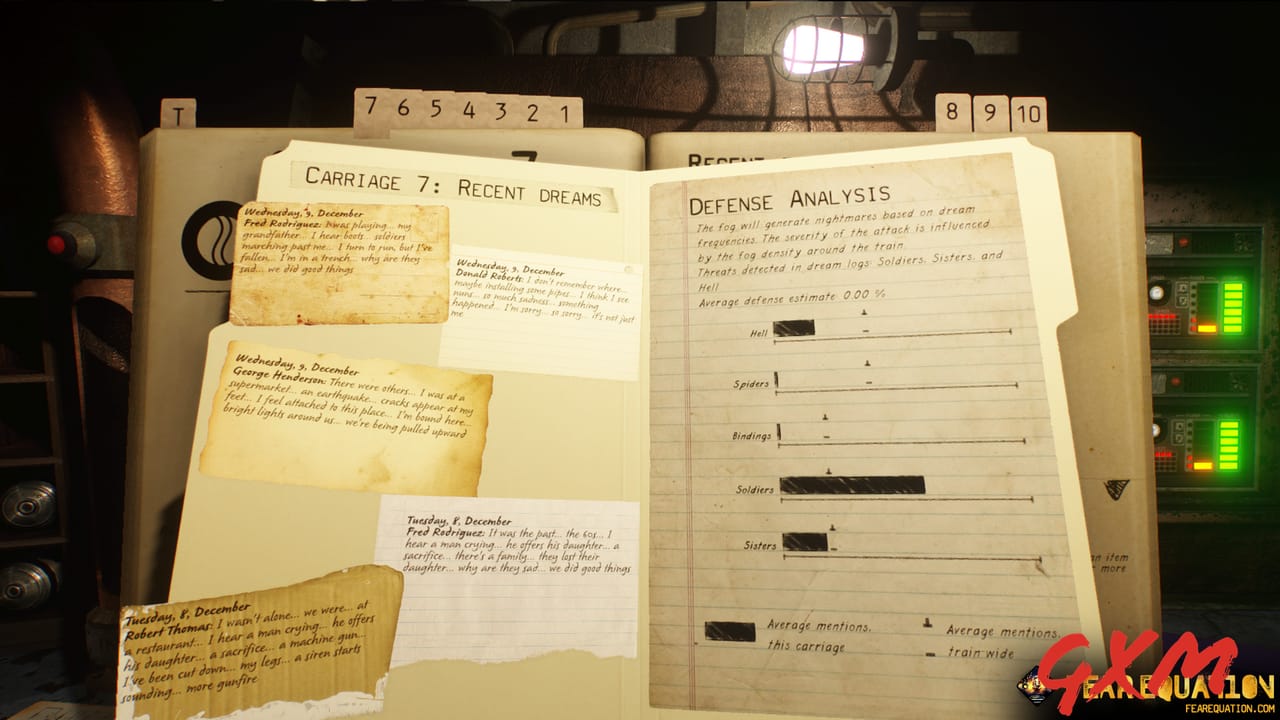 T
7 6 5 4 3 2 1
8 9 10
7
CARRIAGE 7: RECENT DREAMS
Wednesday, 9, December
Fred Rodriguez: I was playing... my
grandfather... I hear boots... soldiers
marching past me... I turn to run, but I've
fallen... I'm in a trench... why are they
sad... we did good things
Wednesday, 9, December
Donald Roberts: I don't remember where...
maybe installing some pipes... I think I see
nuns... so much sadness... something
happened... I'm sorry... so sorry... it's not just
me
Wednesday, 9, December
George Henderson: There were others... I was at a
supermarket... an earthquake... cracks appear at my
feet... I feel attached to this place... I'm bound here...
bright lights around us... we're being pulled upward
Tuesday, 8, December
Fred Rodriguez: It was the past... the 60s... I
hear a man crying... he offers his daughter... a
sacrifice... there's a family... they lost their
daughter... why are they sad... we did good things
Tuesday, 8, December
Robert Thomas: I wasn't alone... we were... at
a restaurant... I hear a man crying... he offers
his daughter... a sacrifice... a machine gun...
I've been cut down... my legs... a siren starts
sounding... more gunfire
RECENT
DEFENSE ANALYSIS
The fog will generate nightmares based on dream
frequencies. The severity of the attack is influenced
by the fog density around the train.
Threats detected in dream logs: Soldiers, Sisters, and
Hell
Average defense estimate: 0.00 %
Hell
Spiders
Bindings
Soldiers
Sisters
Average mentions,
this carriage
Average mentions,
train-wide
an item
more
GXM
FEAR EQUATION
FEAREQUATION.COM